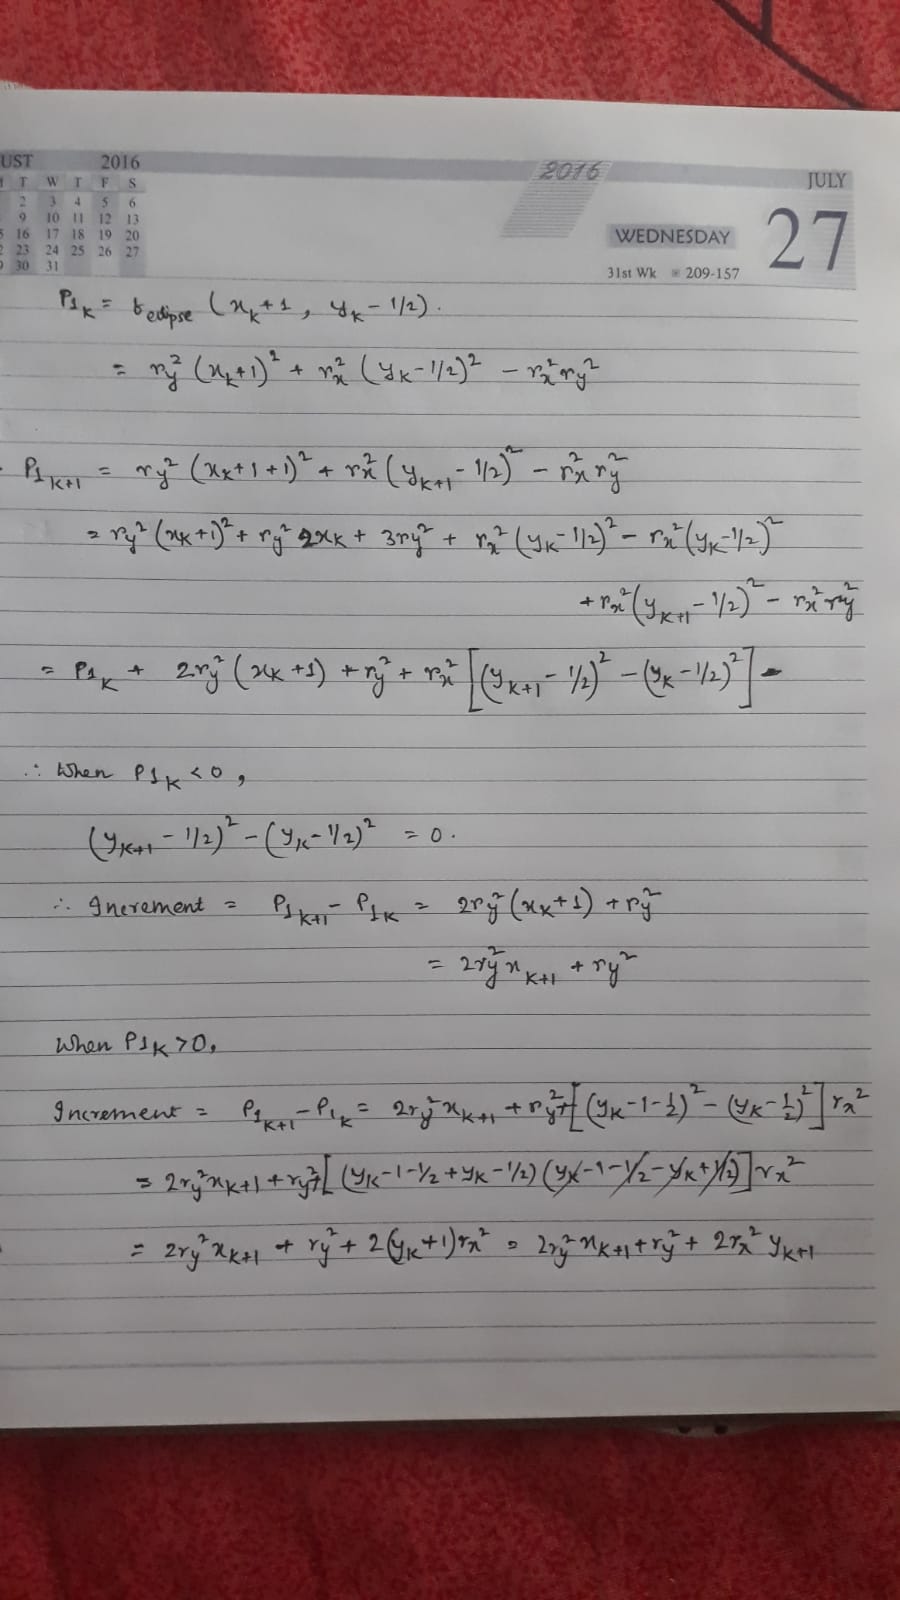 UST 2016
T W T F S
2 3 4 5 6
9 10 11 12 13
16 17 18 19 20
23 24 25 26 27
30 31
2016
JULY
WEDNESDAY 27
31st Wk 209-157
P1ₖ = f ellipse (xₖ+1, yₖ - 1/2).
= ry² (xₖ+1)² + rx² (yₖ-1/2)² - rx² ry²
P1ₖ₊₁ = ry² (xₖ+1+1)² + rx² (yₖ₊₁ - 1/2)² - rx² ry²
= ry² (xₖ+1)² + ry² 2xₖ + 3ry² + rx² (yₖ-1/2)² - rx² (yₖ-1/2)²
+ rx² (yₖ₊₁ - 1/2)² - rx² ry²
= P1ₖ + 2ry² (xₖ+1) + ry² + rx² [(yₖ₊₁ - 1/2)² - (yₖ - 1/2)²] -
∴ When P1ₖ < 0,
(yₖ₊₁ - 1/2)² - (yₖ - 1/2)² = 0.
∴ Increment = P1ₖ₊₁ - P1ₖ = 2ry² (xₖ+1) + ry²
= 2ry² xₖ₊₁ + ry²
When P1ₖ > 0,
Increment = P1ₖ₊₁ - P1ₖ = 2ry² xₖ₊₁ + ry² + [(yₖ - 1 - 1/2)² - (yₖ - 1/2)²] rx²
= 2ry² xₖ₊₁ + ry² + [(yₖ-1-1/2 + yₖ-1/2) (yₖ-1-1/2 - yₖ + 1/2)] rx²
= 2ry² xₖ₊₁ + ry² + 2(yₖ+1) rx² = 2ry² xₖ₊₁ + ry² + 2rx² yₖ₊₁